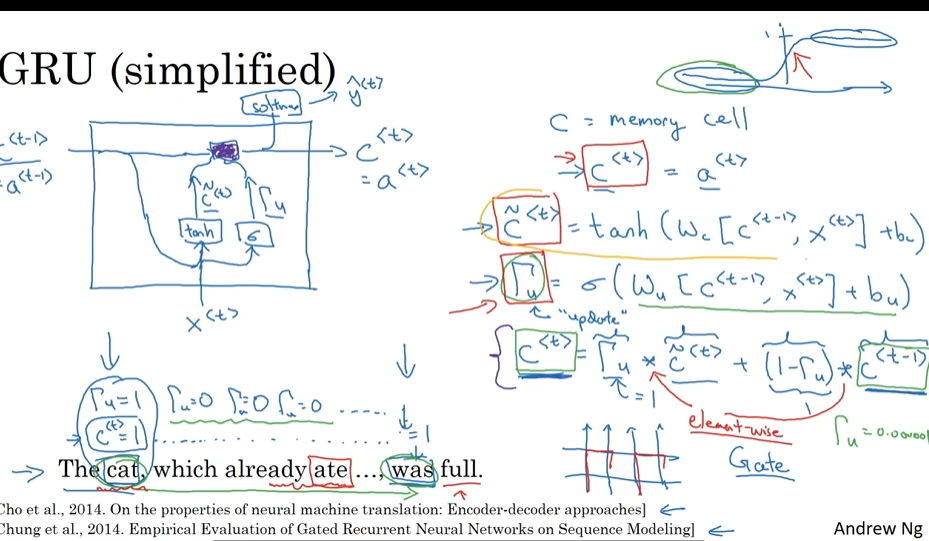 GRU (simplified)
softmax → ŷ<t>
c<t-1>
= a<t-1>
c<t>
= a<t>
c̃<t> Γu
tanh σ
x<t>
1
C = memory cell
→ c<t> = a<t>
→ c̃<t> = tanh(Wc[c<t-1>, x<t>] + bc)
→ Γu = σ(Wu[c<t-1>, x<t>] + bu)
"update"
c<t> = Γu * c̃<t> + (1-Γu) * c<t-1>
= 1
element-wise
Gate
Γu = 0.000001
Γu=1 Γu=0 Γu=0 Γu=0 .....
c<t>=1 .............. = 1
→ The cat, which already ate ..., was full.
Cho et al., 2014. On the properties of neural machine translation: Encoder-decoder approaches] ←
Chung et al., 2014. Empirical Evaluation of Gated Recurrent Neural Networks on Sequence Modeling] ←
Andrew Ng